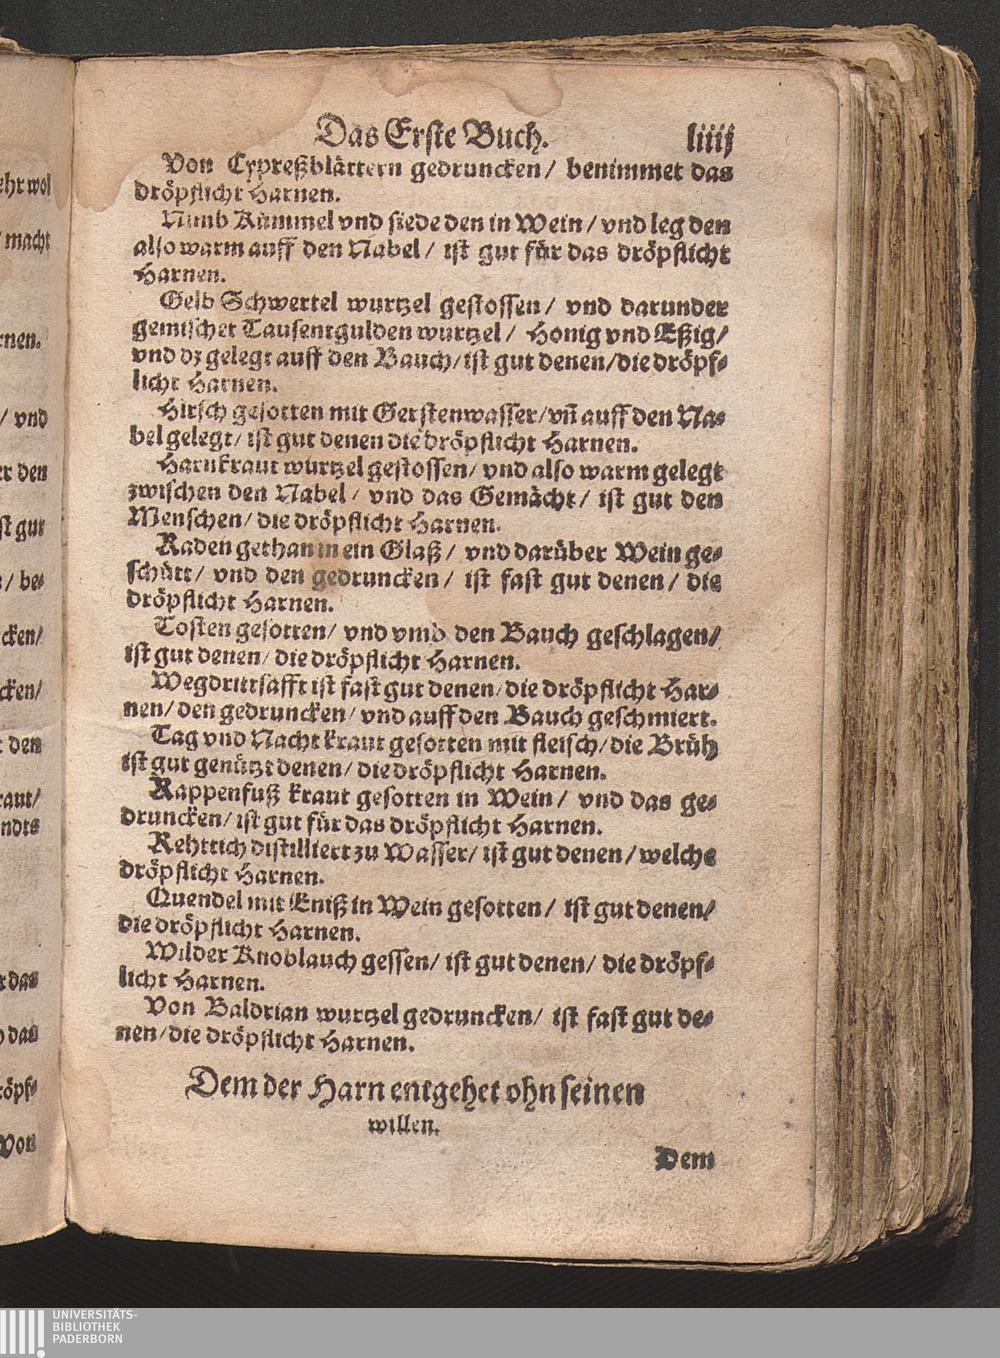 ehr wol
/ macht
rnen.
/ vnd
er den
st gut
/ be⸗
cken/
cken/
t den
raut/
ndts
t das
das
röpf⸗
Von
Das Erste Buch. liiij
Von Cypreßblättern gedruncken/ benimmet das
dröpflicht Harnen.
Nimb Kümmel vnd siede den in Wein/ vnd leg den
also warm auff den Nabel/ ist gut für das dröpflicht
Harnen.
Gelb Schwertel wurtzel gestossen/ vnd darunder
gemischet Tausentgulden wurtzel/ Honig vnd Eßig/
vnd dz gelegt auff den Bauch/ ist gut denen/ die dröpf⸗
licht Harnen.
Hirsch gesotten mit Gerstenwasser/ vñ auff den Na⸗
bel gelegt/ ist gut denen die dröpflicht Harnen.
Harnkraut wurtzel gestossen/ vnd also warm gelegt
zwischen den Nabel/ vnd das Gemächt/ ist gut den
Menschen/ die dröpflicht Harnen.
Raden gethan in ein Glaß/ vnd darüber Wein ge⸗
schütt/ vnd den gedruncken/ ist fast gut denen/ die
dröpflicht Harnen.
Tosten gesotten/ vnd vmb den Bauch geschlagen/
ist gut denen/ die dröpflicht Harnen.
Wegdrittsafft ist fast gut denen/ die dröpflicht Har⸗
nen/ den gedruncken/ vnd auff den Bauch geschmiert.
Tag vnd Nacht kraut gesotten mit fleisch/ die Brüh
ist gut genützt denen/ die dröpflicht Harnen.
Rappenfuß kraut gesotten in Wein/ vnd das ge⸗
druncken/ ist gut für das dröpflicht Harnen.
Rehttich distilliert zu Wasser/ ist gut denen/ welche
dröpflicht Harnen.
Quendel mit Eniß in Wein gesotten/ ist gut denen/
die dröpflicht Harnen.
Wilder Knoblauch gessen/ ist gut denen/ die dröpf⸗
licht Harnen.
Von Baldrian wurtzel gedruncken/ ist fast gut de⸗
nen/ die dröpflicht Harnen.
Dem der Harn entgehet ohn seinen
willen.
Dem
UNIVERSITÄTS-
BIBLIOTHEK
PADERBORN